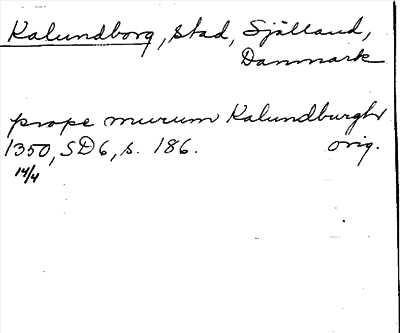 Kalundborg, stad, Själland,
Danmark
prope murum Kalundburgh
1350, SD6, s. 186. orig.
14/4